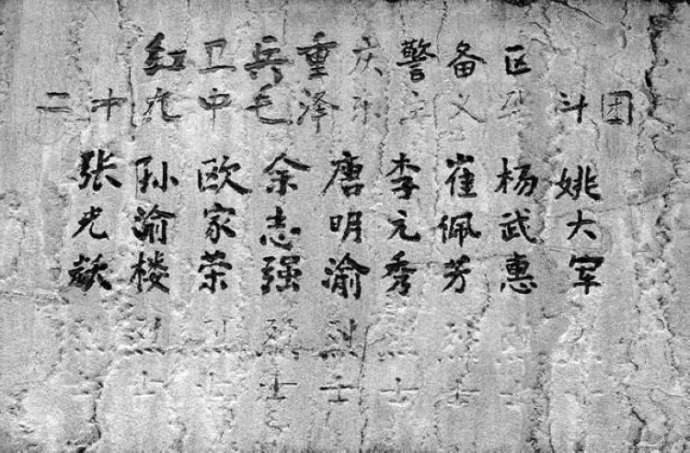 红卫兵重庆警备区
二十九中毛泽东主义斗团
张光耀烈士
孙渝楼烈士
欧家荣烈士
余志强烈士
唐明渝烈士
李元秀烈士
崔佩芳烈士
杨武惠烈士
姚大军